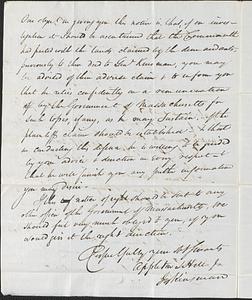 One object in giving you this notice is, that, if on inves-
tigation it should be ascertained that the Commonwealth
had parted with the lands claimed by the demandants,
previously to their deed to Gen. Kinsman, you may
be advised of this adverse claim & to inform you
that he relies confidently on a remuneration
of by the Government of Massachusetts for
such losses, if any, as he may sustain, if the
plaintiffs claim should be established & that
in conducting the defense, he is willing to be guided
by your advice & direction in every respect &
that he will furnish you any further information
you may desire.
If this notice of right should be sent to any
other officer of the Government of Massachusetts, we
should feel very much obliged to you, if you
would give it the right direction.
Respectfully your obt Servants
Appleton & Hill for
Kinsman